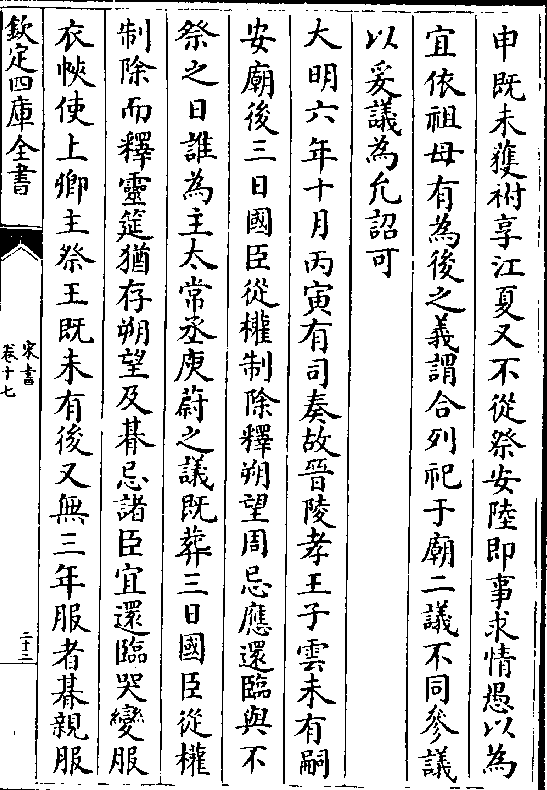 申既未獲祔享江夏又不從祭安陸即事求情愚以為
宜依祖母有為後之義謂合列祀于廟二議不同參議
以妥議為允詔可
大明六年十月丙寅有司奏故晉陵孝王子雲未有嗣
安廟後三日國臣從權制除釋朔望周忌應還臨與不
祭之日誰為主太常丞庾蔚之議既葬三日國臣從權
制除而釋靈筵猶存朔望及朞忌諸臣宜還臨哭變服
衣𢂿使上卿主祭王既未有後又無三年服者朞親服
欽定四庫全書
宋書
卷十七
二十三